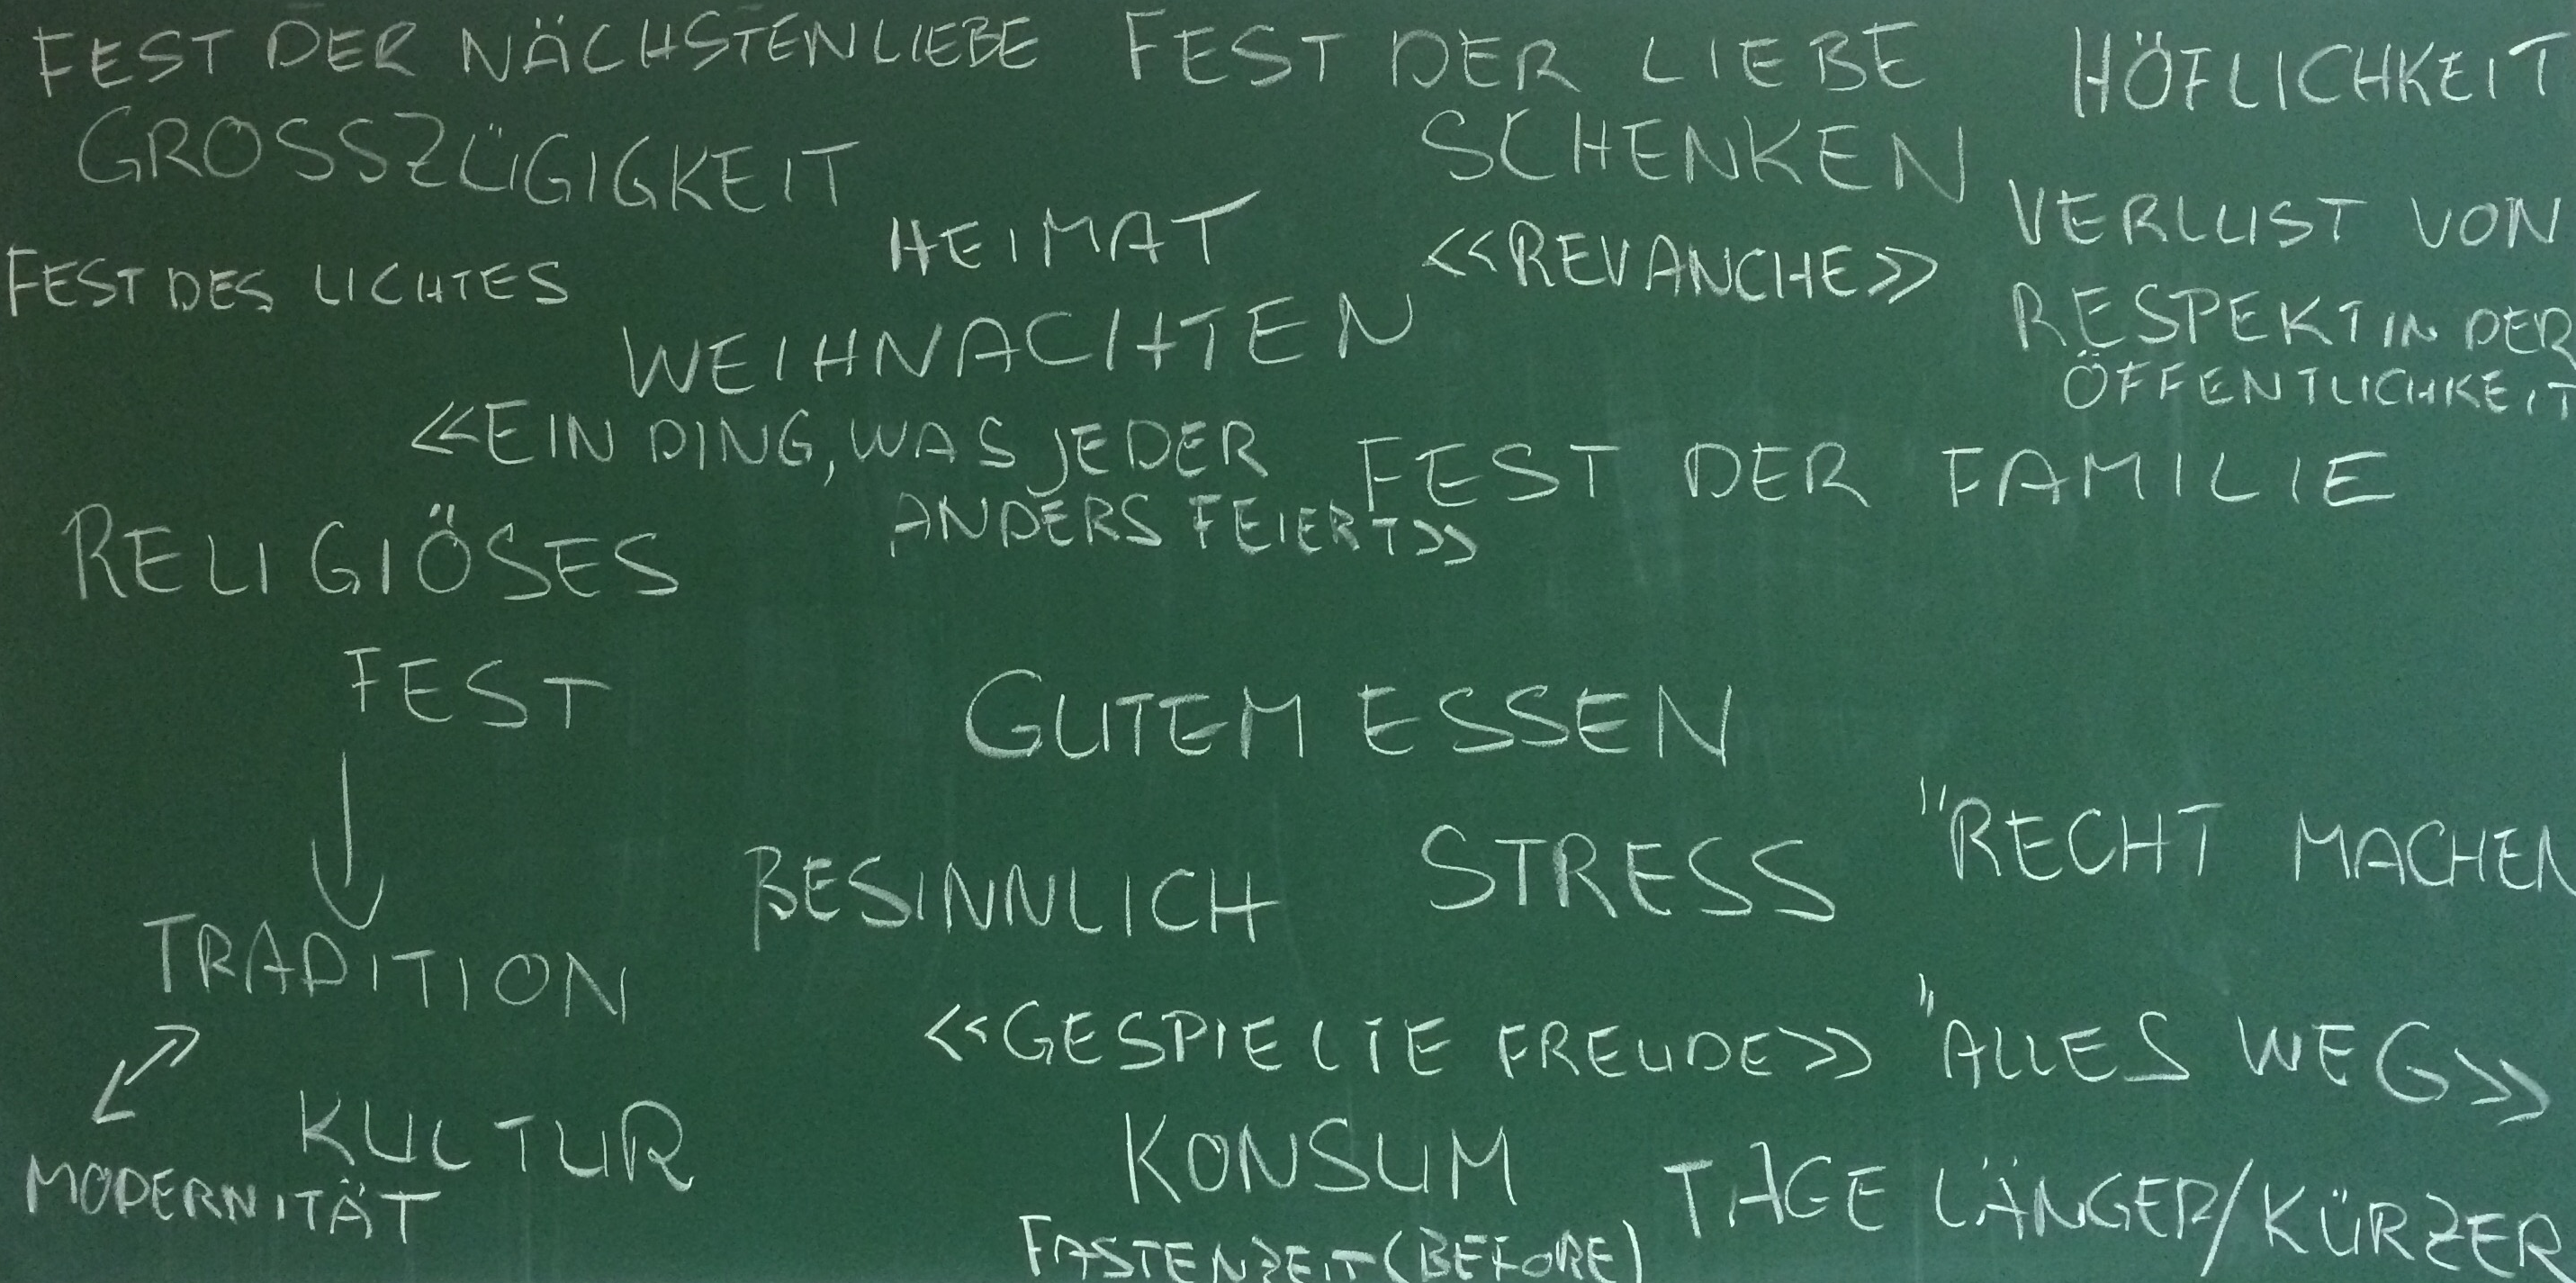 FEST DER NÄCHSTENLIEBE FEST DER LIEBE HÖFLICHKEIT
GROSSZÜGIGKEIT SCHENKEN
HEIMAT <<REVANCHE>> VERLUST VON
FEST DES LICHTES RESPEKT IN DER
WEIHNACHTEN ÖFFENTLICHKEIT
<<EIN DING, WAS JEDER FEST DER FAMILIE
ANDERS FEIERT>>
RELIGIÖSES
FEST
GUTEM ESSEN
"RECHT MACHEN
BESINNLICH STRESS
TRADITION
<<GESPIELTE FREUDE>> "ALLES WEG>>
KULTUR KONSUM
MODERNITÄT TAGE LÄNGER/KÜRZER
FASTENZEIT (BEFORE)